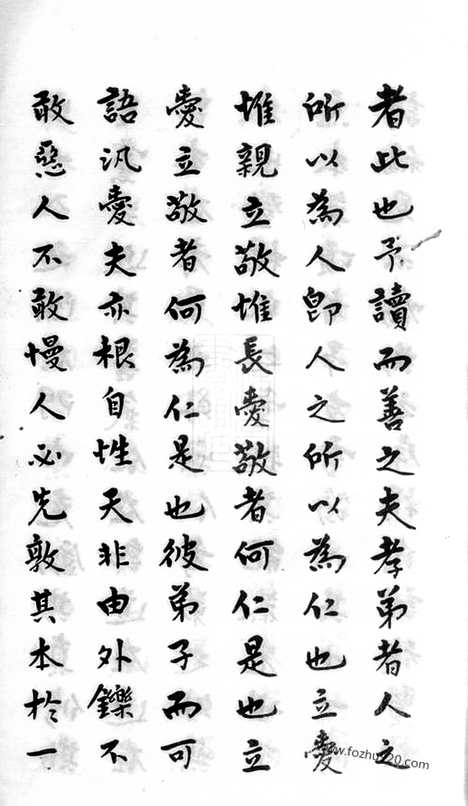 者此也予讀而善之夫孝弟者人之
所以為人即人之所以為仁也立愛
惟親立敬惟長愛敬者何仁是也立
愛立敬者何為仁是也彼弟子而可
語汎愛夫亦根自性天非由外鑠不
敢惡人不敢慢人必先敦其本於一
www.fozhu920.com